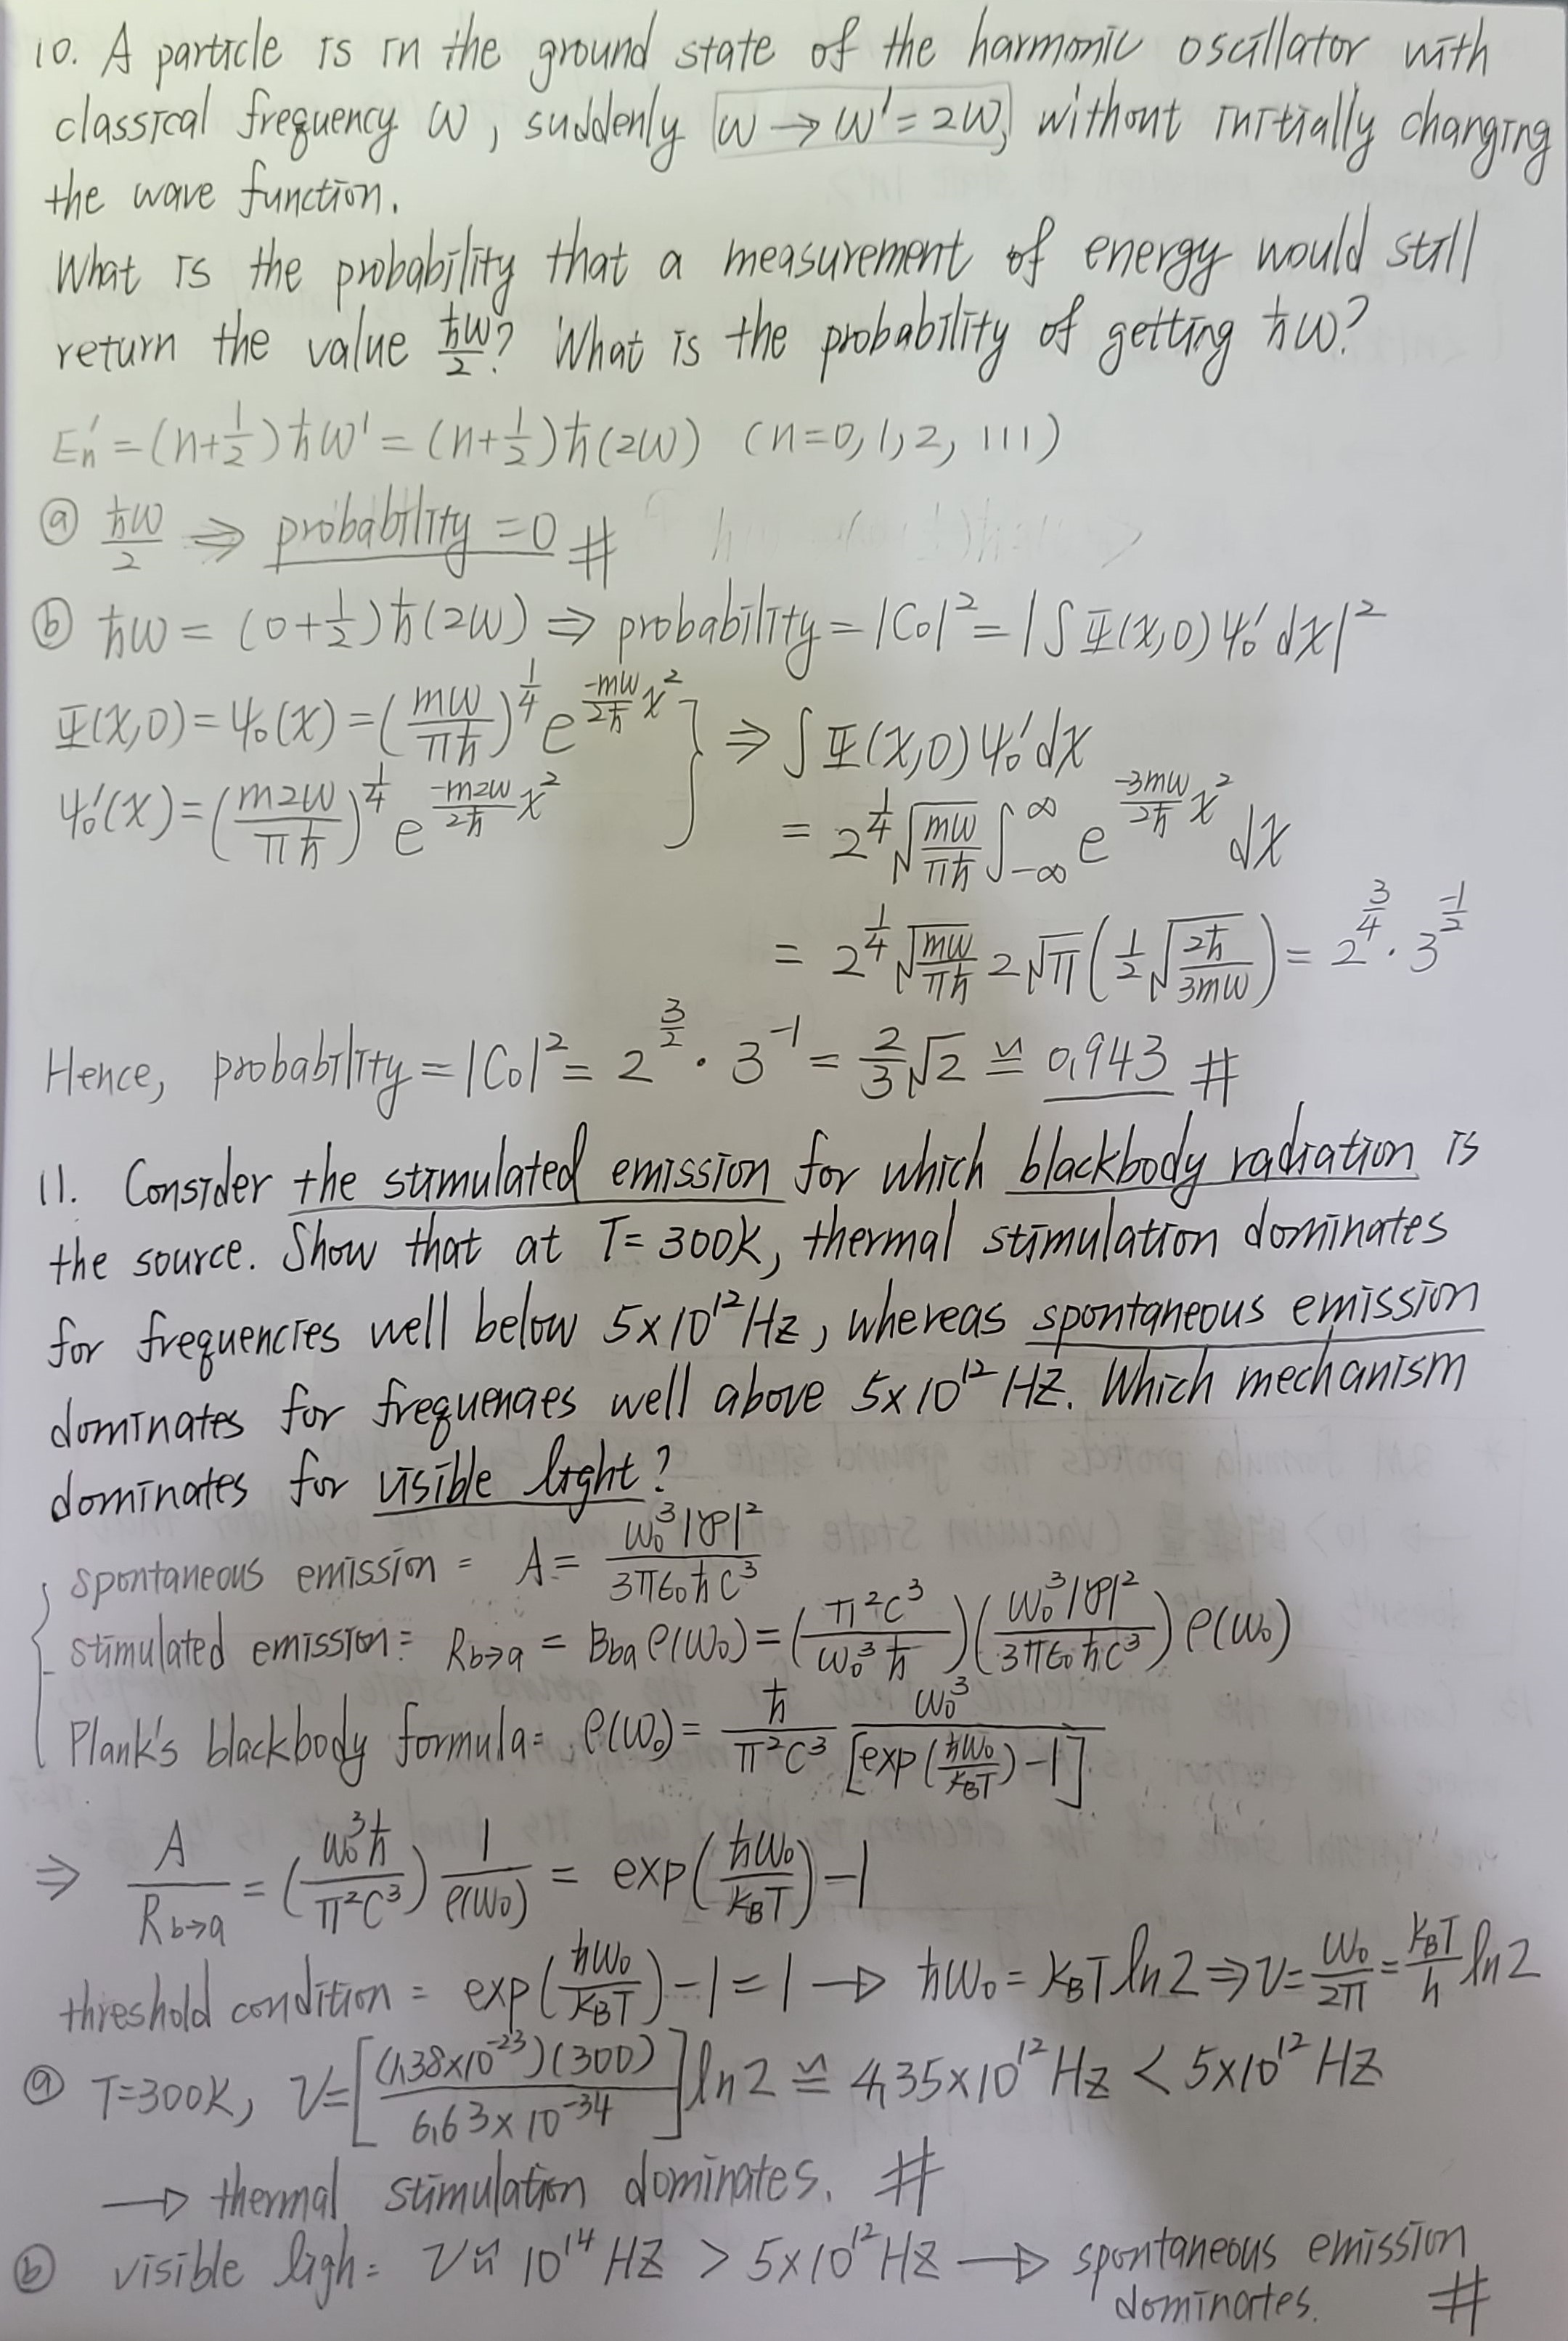 10. A particle is in the ground state of the harmonic oscillator with
classical frequency ω, suddenly ω → ω' = 2ω, without initially changing
the wave function.
What is the probability that a measurement of energy would still
return the value ħω/2? What is the probability of getting ħω?
En' = (n+1/2)ħω' = (n+1/2)ħ(2ω) (n=0,1,2, ···)
ⓐ ħω/2 ⇒ probability = 0 #
ⓑ ħω = (0+1/2)ħ(2ω) ⇒ probability = |C₀|² = |∫Ψ(x,0)ψ₀'dx|²
Ψ(x,0) = ψ₀(x) = (mω/πħ)^(1/4) e^(-mω/2ħ x²) } ⇒ ∫Ψ(x,0)ψ₀'dx
ψ₀'(x) = (m2ω/πħ)^(1/4) e^(-m2ω/2ħ x²)
= 2^(1/4) √(mω/πħ) ∫_{-∞}^{∞} e^(-3mω/2ħ x²) dx
= 2^(1/4) √(mω/πħ) 2√π (1/2 √(2ħ/3mω)) = 2^(3/4) · 3^(-1/2)
Hence, probability = |C₀|² = 2^(3/2) · 3^(-1) = 2/3 √2 ≌ 0.943 #
11. Consider the stimulated emission for which blackbody radiation is
the source. Show that at T = 300K, thermal stimulation dominates
for frequencies well below 5×10¹² Hz, whereas spontaneous emission
dominates for frequencies well above 5×10¹² Hz. Which mechanism
dominates for visible light?
spontaneous emission = A = ω₀³|℘|²/3πε₀ħc³
stimulated emission = R_{b→a} = B_{ba} ρ(ω₀) = (π²c³/ω₀³ħ)(ω₀³|℘|²/3πε₀ħc³) ρ(ω₀)
Plank's blackbody formula = ρ(ω₀) = ħ/π²c³ ω₀³/[exp(ħω₀/k_BT)-1]
⇒ A/R_{b→a} = (ω₀³ħ/π²c³) 1/ρ(ω₀) = exp(ħω₀/k_BT) -1
threshold condition = exp(ħω₀/k_BT) -1 = 1 → ħω₀ = k_BT ln2 ⇒ ν = ω₀/2π = k_BT/h ln2
ⓐ T=300K, ν = [(1.38×10⁻²³)(300)/6.63×10⁻³⁴] ln2 ≌ 4.35×10¹² Hz < 5×10¹² Hz
→ thermal stimulation dominates. #
ⓑ visible ligh = ν ≈ 10¹⁴ Hz > 5×10¹² Hz → spontaneous emission
dominates. #